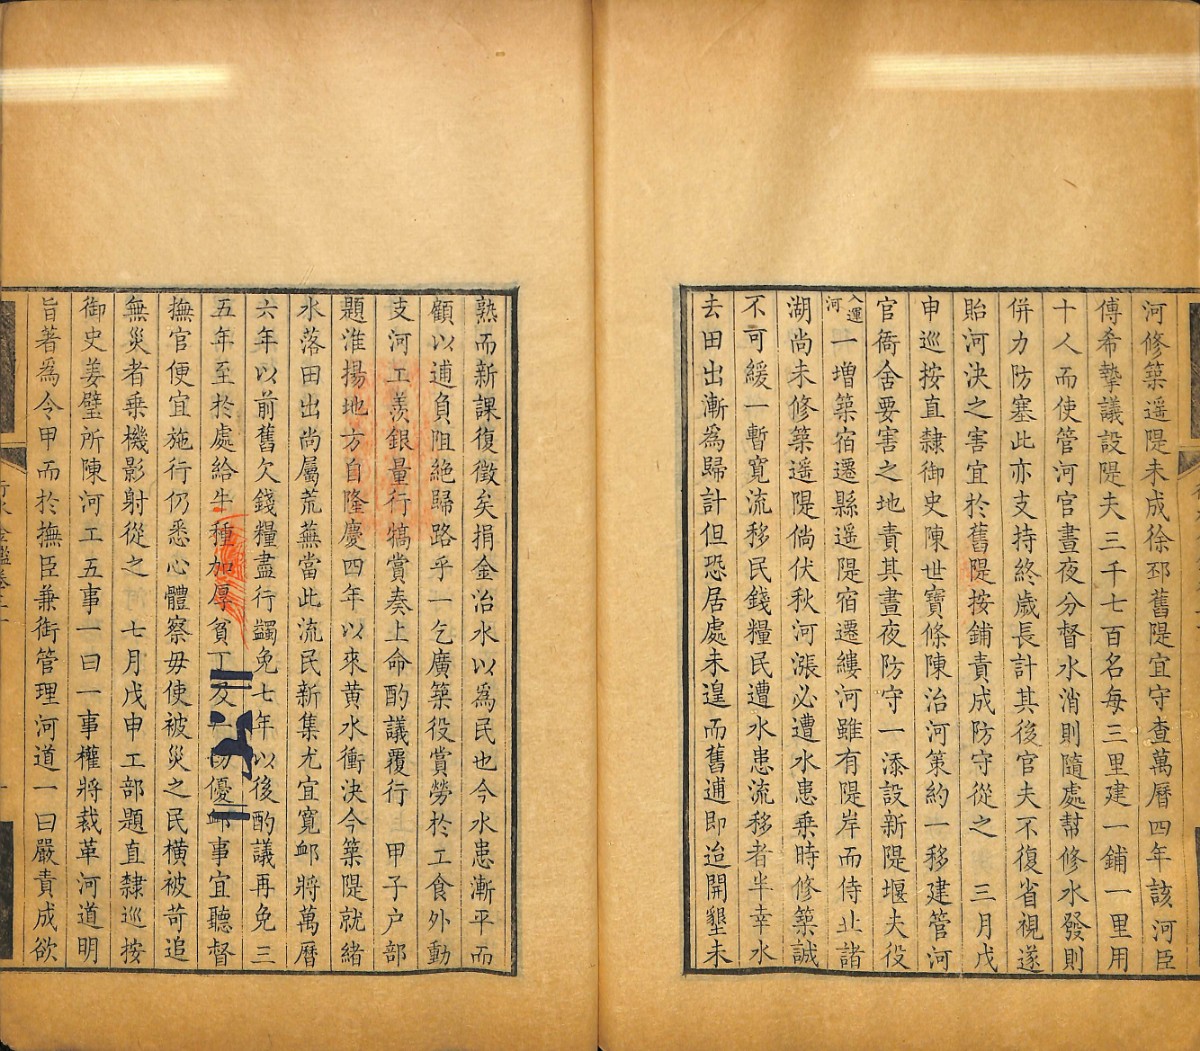 河修築遥隄未成徐邳舊隄宜守查萬曆四年該河臣
傅希摯議設隄夫三千七百名每三里建一鋪一里用
十人而使管河官晝夜分督水消則隨處幫修水發則
併力防塞此亦支持終歲長計其後官夫不復省視遂
貽河決之害宜於舊隄按鋪責成防守從之　三月戊
申巡按直隸御史陳世寶條陳治河策約一移建管河
官衙舍要害之地責其晝夜防守一添設新隄堰夫役
入運河一增築宿遷縣遥隄宿遷縷河雖有隄岸而侍丘諸
湖尚未修築遥隄倘伏秋河漲必遭水患乘時修築誠
不可緩一暫寬流移民錢糧民遭水患流移者半幸水
去田出漸為歸計但恐居處未遑而舊逋即迨開墾未
熟而新課復徵矣捐金治水以為民也今水患漸平而
顧以逋負阻絶歸路乎一乞廣築役賞勞於工食外動
支河工羨銀量行犒賞奏上命酌議覆行　甲子户部
題淮揚地方自隆慶四年以來黄水衝決今築隄就緒
水落田出尚屬荒蕪當此流民新集尤宜寛卹將萬曆
六年以前舊欠錢糧盡行蠲免七年以後酌議再免三
五年至於處給牛種加厚貧丁及優卹事宜聽督
撫官便宜施行仍悉心體察毋使被災之民横被苛追
無災者乗機影射從之　七月戊申工部題直隸巡按
御史姜璧所陳河工五事一曰一事權將裁革河道明
旨著為令甲而於撫臣兼銜管理河道一曰嚴責成欲
行水金鑑卷